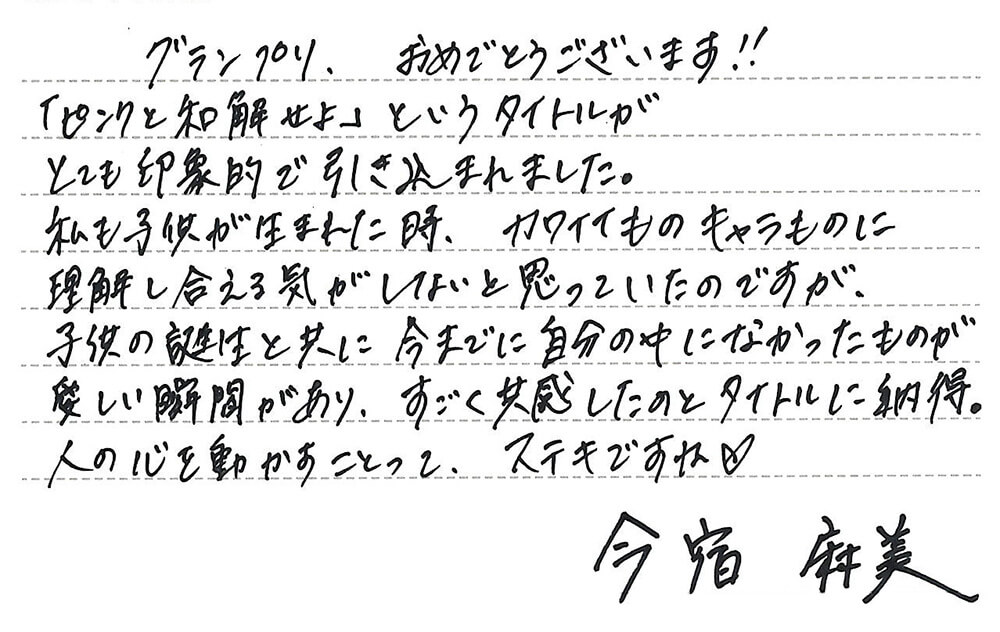 グランプリ、おめでとうございます!!
「ピンクと和解せよ」というタイトルが
とても印象的で引き込まれました。
私も子供が生まれた時、カワイイもの キャラものに
理解し合える気がしないと思っていたのですが、
子供の誕生と共に今までに自分の中になかったものが
愛しい瞬間があり、すごく共感したのとタイトルに納得。
人の心を動かすことって、ステキですね♡
今宿 麻美